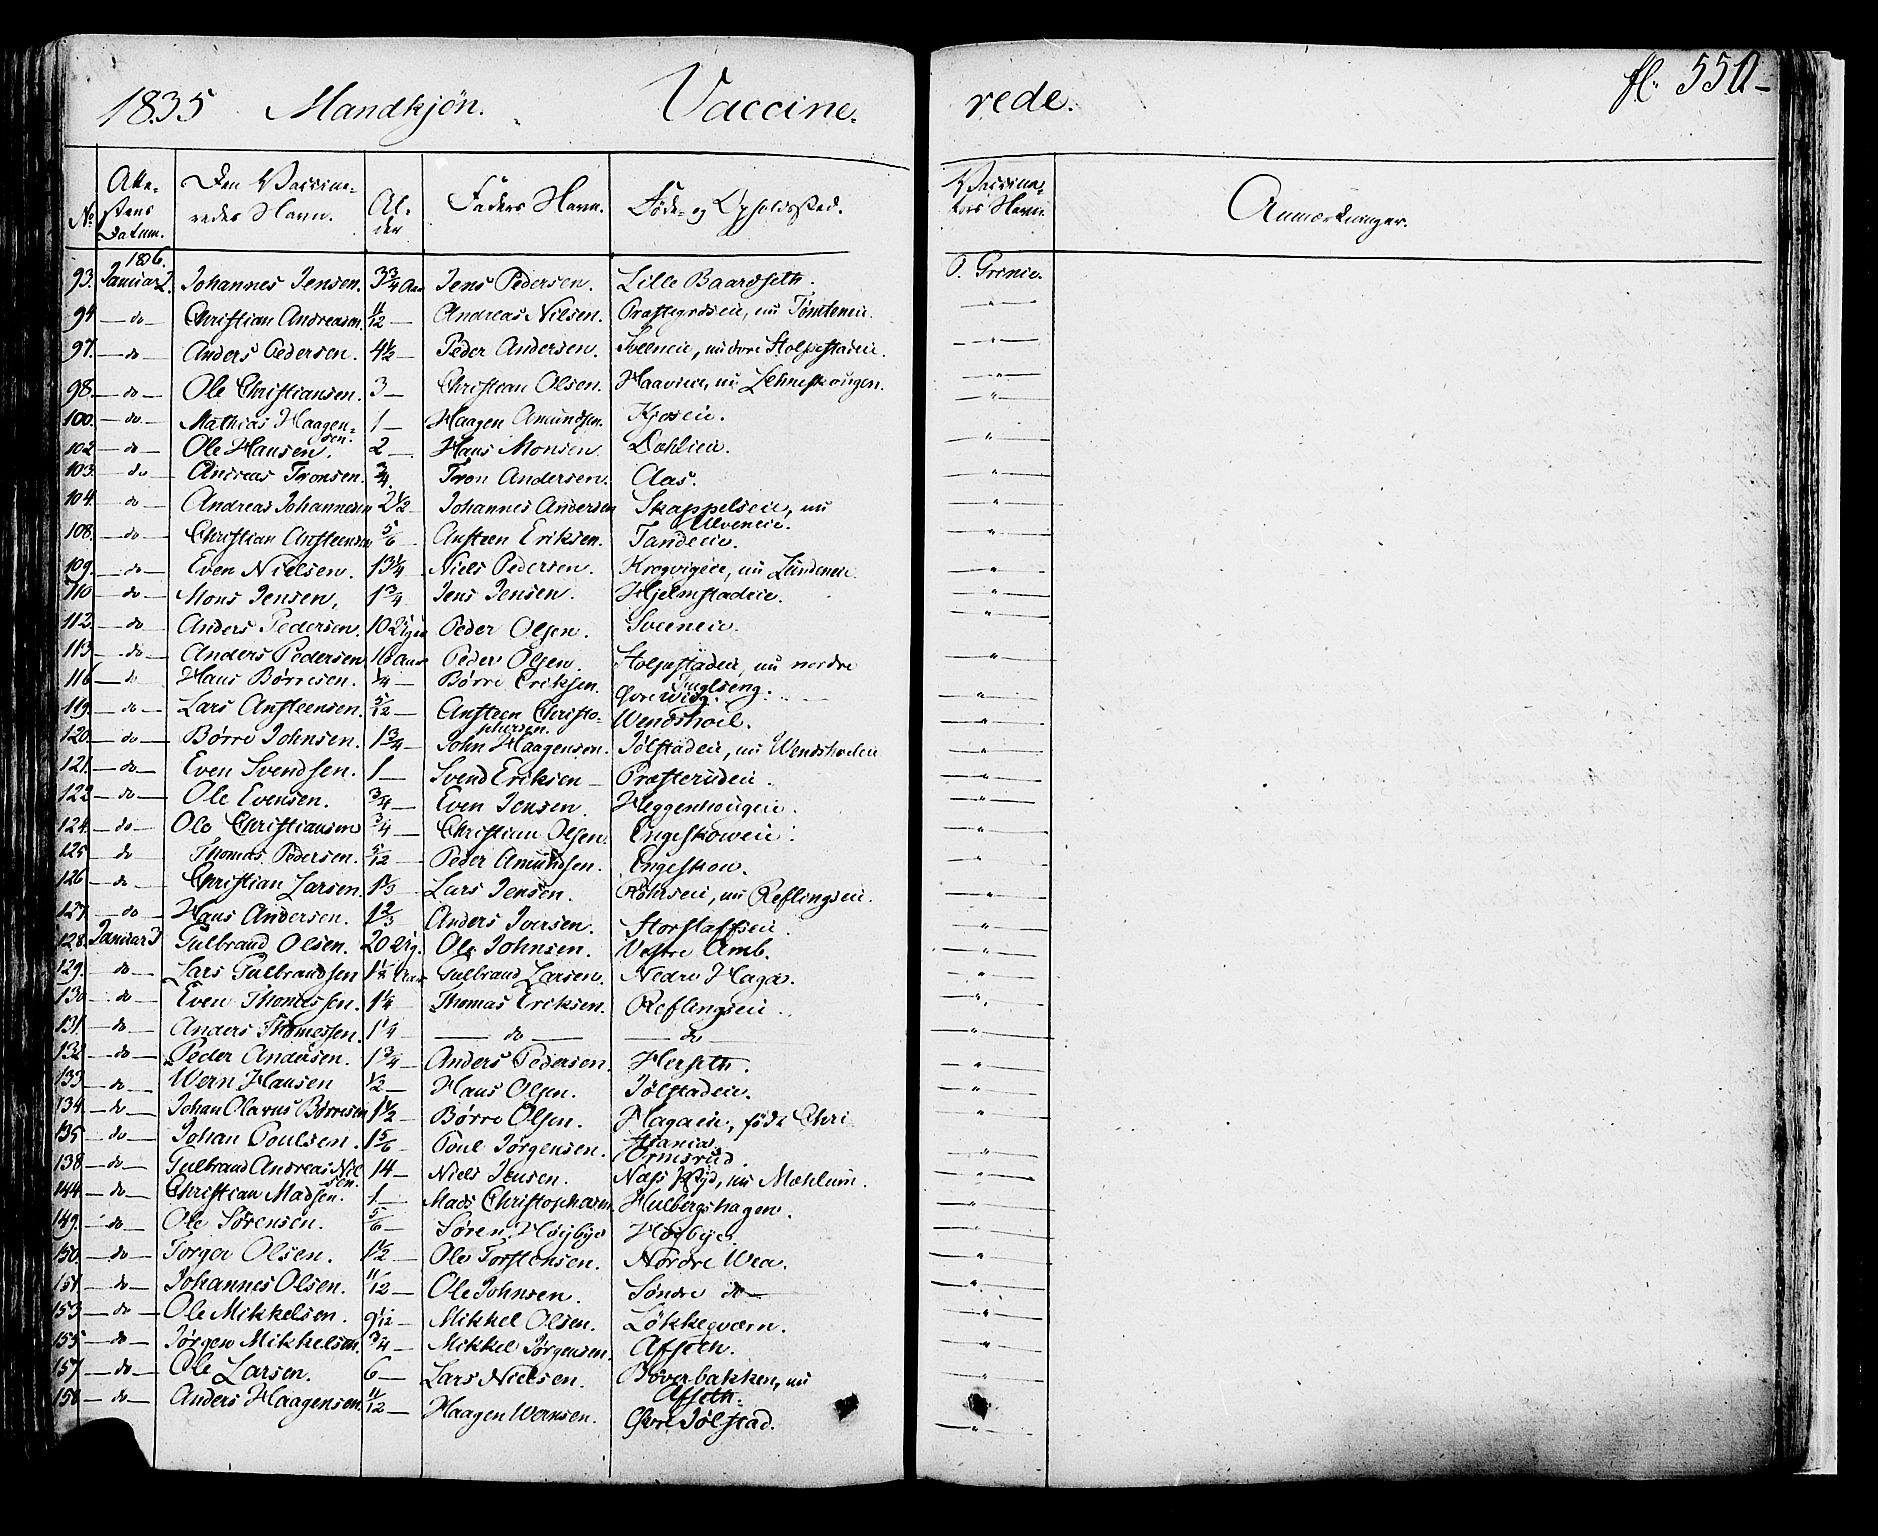 1835 Mandkjön. Vaccine- rede. fl. 550
No. Atte- stens Datum. Den Vaccine- redes Navn. Al- der Faders Navn. Føde- og Opholdssted. Vaccina- tors Navn Anmærkninger.
1836.
93. Januar 2. Johannes Jensen. 3 3/4 Aar Jens Pedersen. Lille Baardseth. O. Grenie.
94 — do — Christian Andreasen. 11/12 — Andreas Nilsen. Præstegrdseie, nu Tomteneie. — " —
97. — do Anders Pedersen. 4 1/2 — Peder Andersen. Sveeneie, nu øvre Stolpestadeie. — " —
98. — do — Ole Christiansen. 3 — Christian Olsen. Haavieie, nu — " —
100. — do — Mathias Haagen- sen. 1 — Haagen Amundsen. Kjoseie. — " —
102 — do — Ole Hansen. 2 — Hans Monsen. Dæhlieie. — " —
103. — do Andreas Tronsen. 3/4. Tron Andersen. Aas. — " —
104. — do Andreas Johannesen 2 1/2 Johannes Andersen Skappelseie, nu Ulveneie. — " —
108. — do — Christian Ansteensen 5/6 Ansteen Eriksen. Tandeeie. — " —
109. — do — Even Nielsen. 13 1/4 Niels Pedersen. Krogvigeie, nu Lundeneie. — " —
110 — do — Mons Jensen, 1 3/4 Jens Jensen. Hjelmstadeie. — " —
112. — do Anders Pedersen. 10 Uger Peder Olsen. Sveeneie. — " —
113. — do Anders Pedersen 10 Aar Peder Olsen. Stolpestadeie, nu nordre Fuglseng. — " —
116 — do Hans Børresen. 1/4 — Børre Eriksen. Øvre Wiig.
119. — do — Lars Ansteensen. 5/12 — Ansteen Christo- phersen. Wendshoel. — " —
120. — do — Børre Johnsen. 1 3/4 — John Haagensen. Jølstadeie, nu Wendshoeleie — " —
121. — do — Even Svendsen. 1 — Svend Eriksen — Præsterudeie. — " —
122 — do — Ole Evensen. 3/4 — Even Jensen. Heggenhougeie. — " —
124. — do — Ole Christiansen 3/4 — Christian Olsen. Engeskoweie. — " —
125 — do Thomas Pedersen. 5/12 — Peder Amundsen. Engeskow. — " —
126 — do Christian Larsen. 1 1/3 Lars Jensen. Röhrseie, nu Reflingseie. — " —
127. — do — Hans Andersen. 1 2/3 Anders Iversen. Storstaffseie. — " —
128. Januar 3 Gulbrand Olsen. 20 Ug. Ole Johnsen. Vestre Amb. — " —
129. — do Lars Gulbrandsen 1 1/2 Aar Gulbrand Larsen. Nedre Haga. — " —
130 do — Even Thomessen. 1 1/4 Thomas Eriksen. Reflingseie. — " —
131. — do Anders Thomessen. 1 1/4 — do — — do — — " —
132 — do — Peder Andersen. 1 3/4 — Anders Pedersen. Herseth. — " —
133 — do — Wern Hansen 1/2 — Hans Olsen. Jølstadeie. — " —
134. — do — Johan Olavus Børresen 1 1/2 Børre Olsen. Hagaeie, född Chri- stania. — " —
135 — do — Johan Poulsen. 1 5/6 — Poul Jørgensen. Ormsrud. — " —
138 — do — Gulbrand Andreas Niel- sen. 14 — Niels Jensen. Næss Pgd, nu Mæhlum. — " —
144 — do — Christian Madsen. 1 — Mads Christophersen Hulbergshagen. — " —
149. — do — Ole Sørensen. 5/6 — Søren Høybye Høybye. — " —
150. — do — Torger Olsen. 1 1/2 — Ole Torstensen. Nordre Wea. — " —
151. — do — Johannes Olsen. 11/12 — Ole Johnsen. Søndre do — — " —
153 — do — Ole Mikkelsen. 9 1/12 — Mikkel Olsen. Løkkeqværn. — " —
155 — do — Jørgen Mikkelsen. 3/4 — Mikkel Jørgensen. Afseth. — " —
157 — do — Ole Larsen. 6 — Lars Nielsen. Bøverbakken, nu Afseth. — " —
158 — do — Anders Haagensen. 11/12 — Haagen Wernsen. Øvre Jølstad. — " —